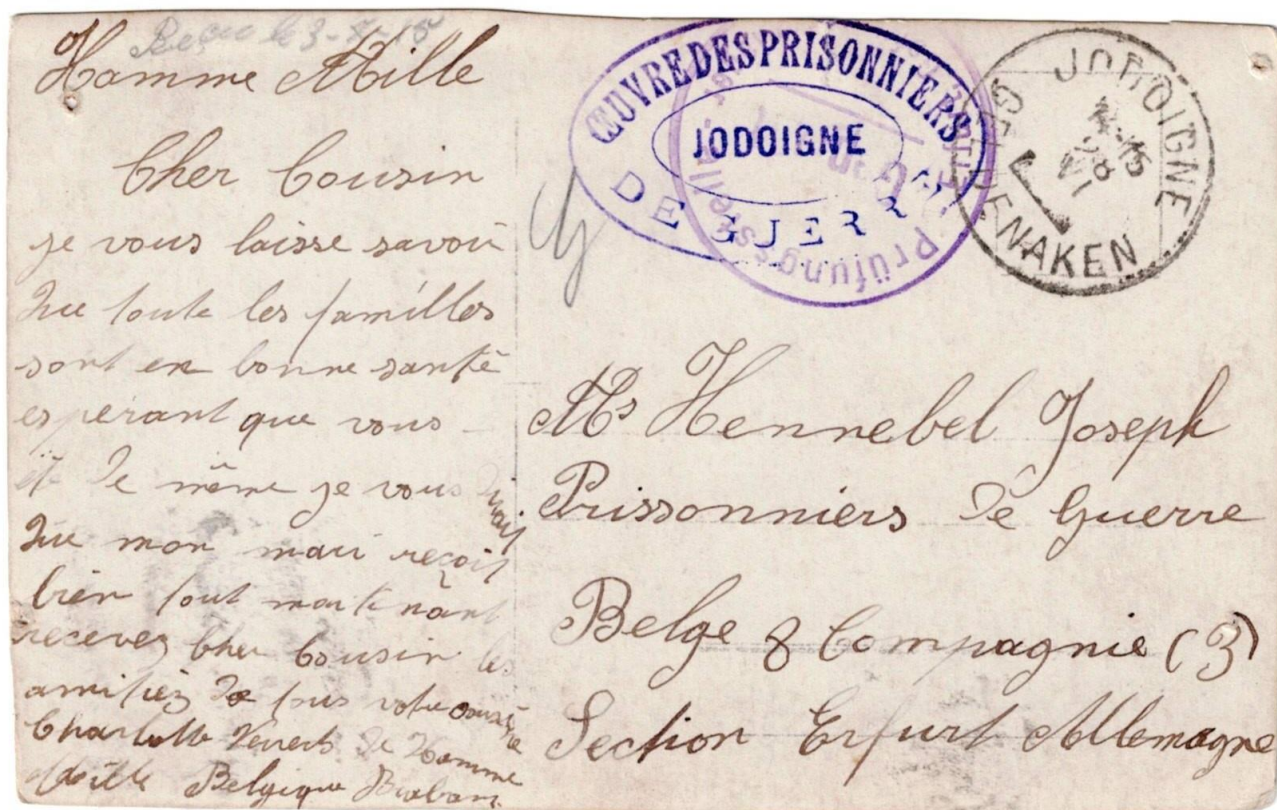 Reçu le 3-8-15
Hamme Mille
Cher Cousin
je vous laisse savoir
que toute les familles
sont en bonne santé
espérant que vous
de même je vous dirais
que mon mari reçoit
bien tout maitenant
recevez Cher Cousin les
amitiez de tous votre cousine
Charlotte de Hamme
Mille Belgique Braban
ŒUVRE DES PRISONNIERS
JODOIGNE
DE GUERRE
Prüfungsstelle
JODOIGNE
GELDENAKEN
Mr Hennebel Joseph
Prissonniers de Guerre
Belge 8 Compagnie (3)
Section Erfurt Allemagne